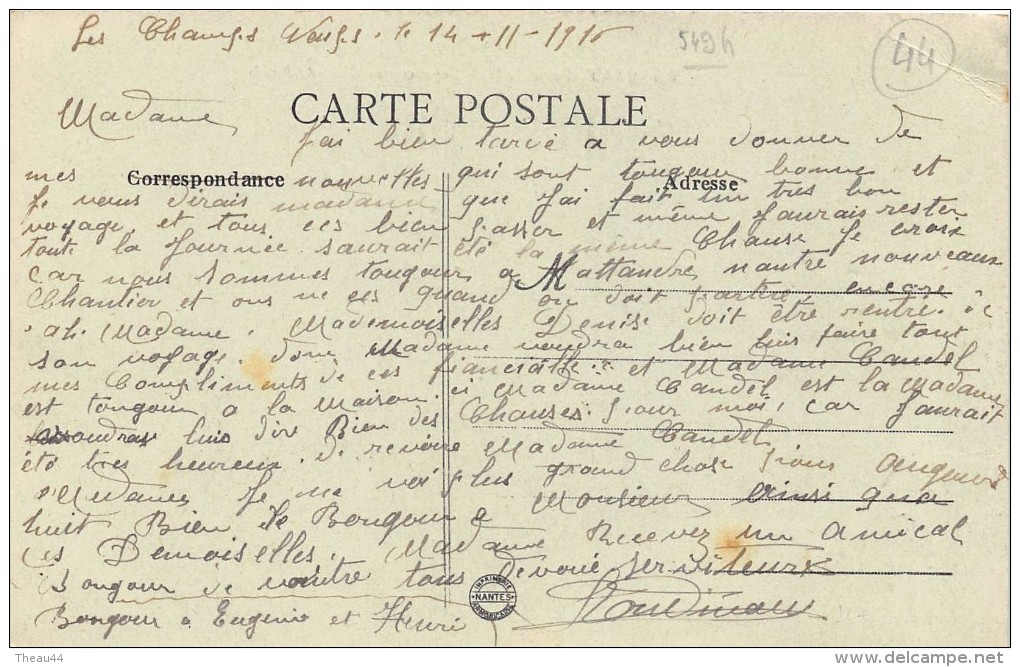 Les Champs Neufs. le 14-11-1916
549h
44
Madame
CARTE POSTALE
J'ai bien tardé a vous donner de
mes Correspondance nouvelles qui sont tougour bonne et Adresse
Je vous dirais madame que J'ai fait un tres bon
voyage et tous ces bien passer et même Jaurais rester
toute la Journée saurait été la même Chause Je crois
car nous sommes tougour a Mattandre nautre nouveaux
Chantier et ons ne ces quand on doit partire encore
Madame. Mademoiselles Denise doit être rentré
son voyage. dom Madame voudra bien luis faire tout
mes Compliments de ces fiancialle et Madame Caudel
est tougour a la maison. si Madame Caudel est la Madame
voudras luis dire Bien des Chauses pour moi, car Jaurait
été tres heureux de revoire Madame Caudel.
Madame, Je ne voi plus grand chose pour augour
huit Bien le Bongour a Monsieur ainsi qua
ces Demoiselles. Madame Recevez un amical
Bongour de vautre tous devoué serviteurx
Bongour a Eugenie et Henri
IMPRIMERIE NANTES ARMORICAINE
Theau44
delcampe.net